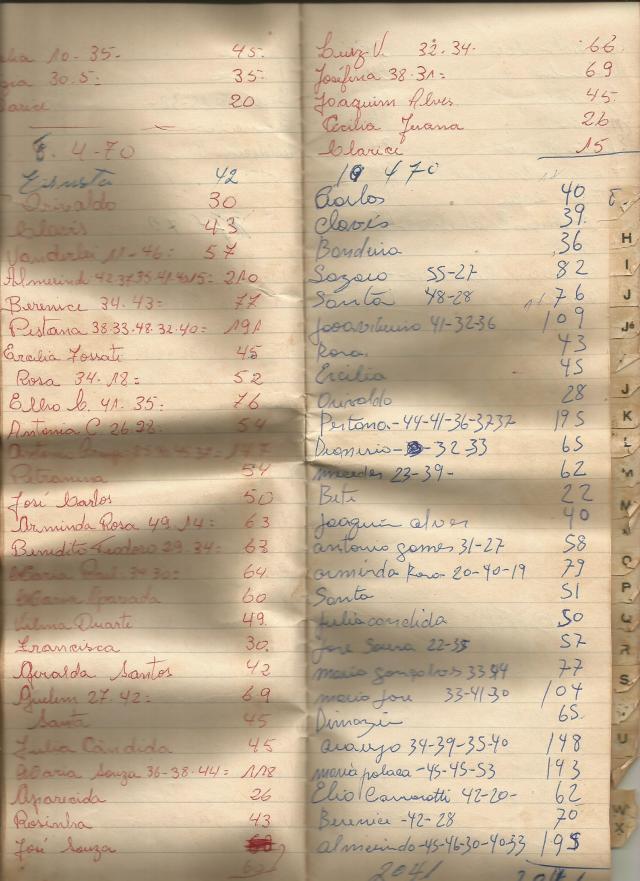 10-35- 45.
30.5= 35.
Clarice 20
8. 4-70
42
Orivaldo 30
Clovis 43
Vanderlei 11-46= 57
Almerindo 42.37.35.41.40.15= 210
Berenice 34.43= 77
Pestana 38.33.48.32.40= 191
Ercilia Fossati 45
Rosa 34.18= 52
Elho C. 41.35= 76
Antonia C. 26.28. 54
54
José Carlos 50
Arminda Rosa 49.14= 63
Benedito Teodoro 29.34= 63
Maria José 34.30= 64
Maria Aparada 60
Vilma Duarte 49.
Francisca 30.
Geralda Santos 42
27.42= 69
Santa 45
Julia Cândida 45
Maria Souza 36-38-44= 118
Aparecida 26
Rosinha 43
José Souza
Luiz V. 32.34. 66
Josefina 38.31= 69
Joaquim Alves 45.
Cecilia Juana 26
Clarice 15
10 4 70
Carlos 40
Clovis 39.
Bandeira 36
Lazaro 55-27 82
Santa 48-28 76
Joao ribeiro 41-32-36 109
Rosa 43
Ercilia 45
Orivaldo 28
Pestana-44-41-36-3737 195
Dionisio- 32-33 65
mercedes 23-39- 62
Beti 22
Joaquin alves 40
antonio gomes 31-27 58
arminda Rosa-20-40-19 79
Santa 51
Julia candida 50
José Souza 22-35 57
maria gonçalves 33 44 77
maria José 33-41-30 104
65
araujo 34-39-35-40 148
maria polaca-45-45-53 143
Elio Camarotti 42-20- 62
Berenice-42-28 70
almerindo-45-46-30-40-33 195
2041
H
I
J
J
K
L
M
P
R
S
U
W
X